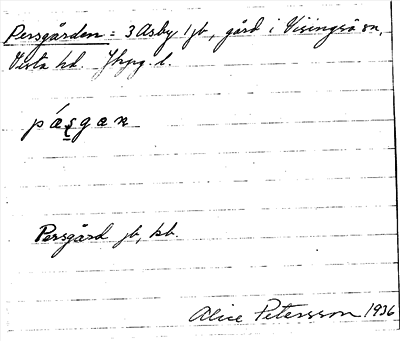 Persgården = 3 Åsby 1 jb, gård i Visingsö sn,
Vista hd. Jkpg. l.
páʂgan
Persgård jb, kb.
Alice Petersson 1936